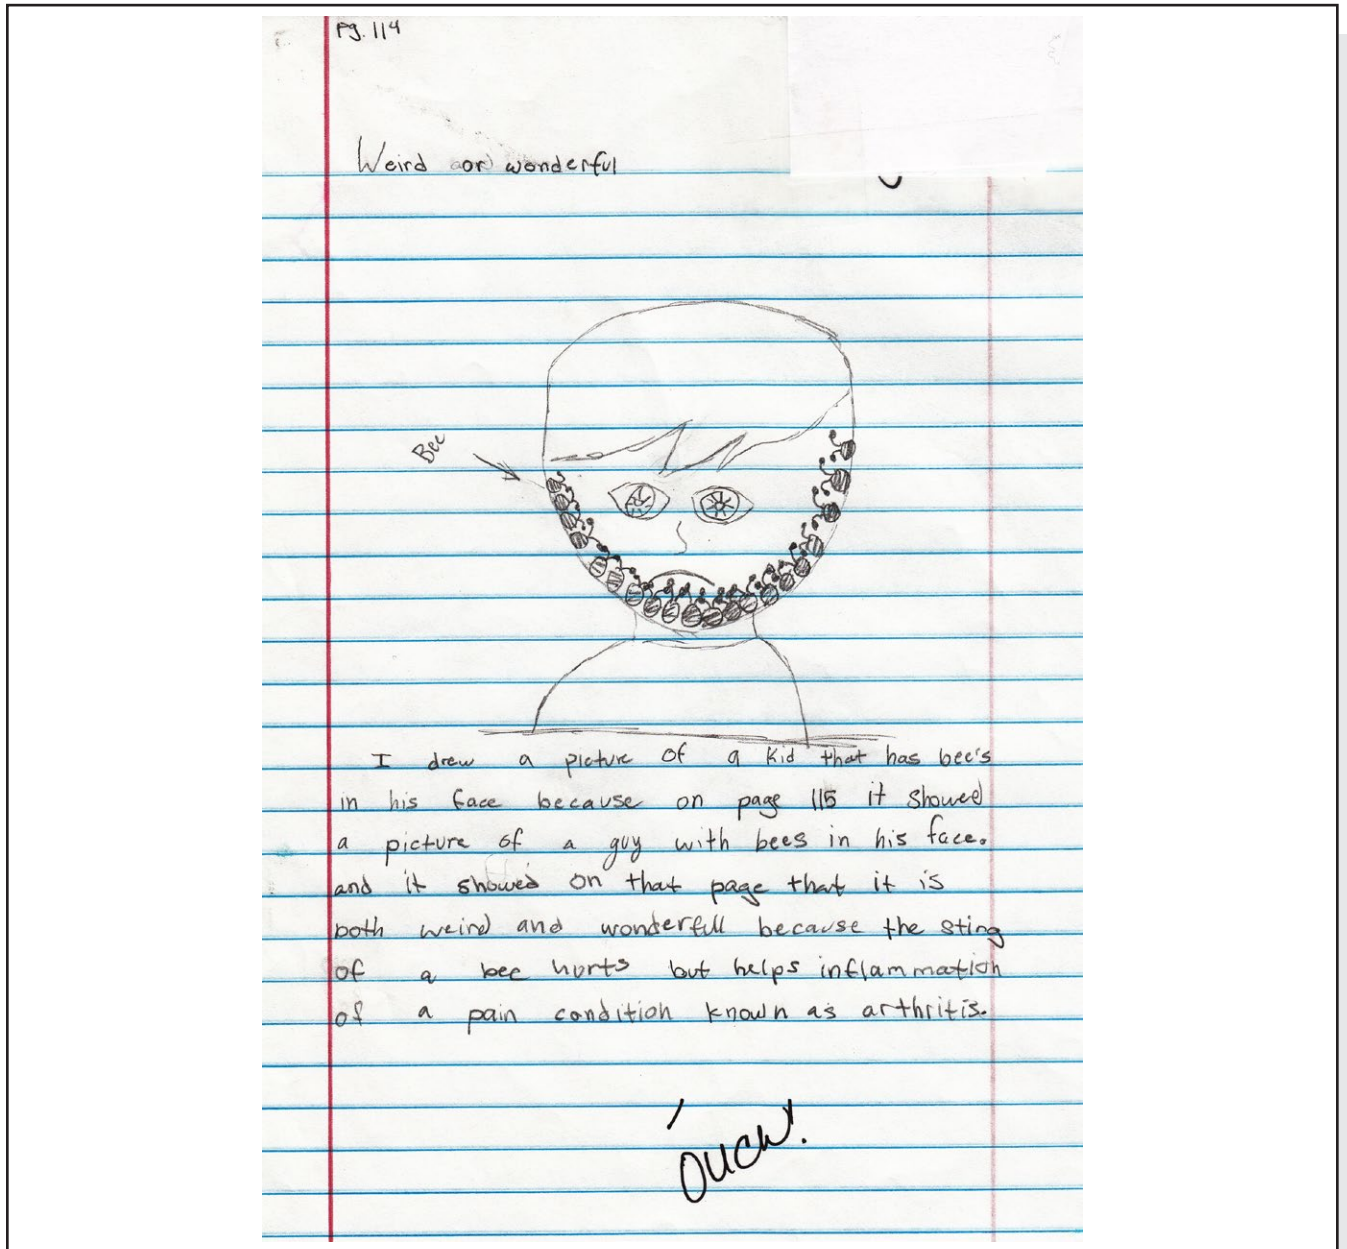 Pg. 114
Weird or wonderful
Bee
I drew a picture of a kid that has bee's
in his face because on page 115 it showed
a picture of a guy with bees in his face.
and it showed on that page that it is
both weird and wonderfull because the sting
of a bee hurts but helps inflammation
of a pain condition known as arthritis.
Ouch!